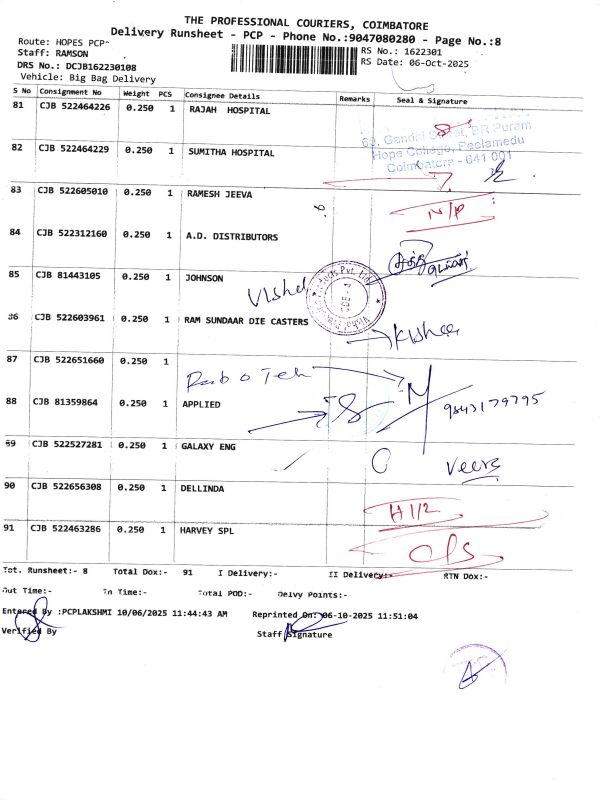 THE PROFESSIONAL COURIERS, COIMBATORE
Delivery Runsheet - PCP - Phone No.:9047080280 - Page No.:8
Route: HOPES PCP
Staff: RAMSON
DRS No.: DCJB162230108
Vehicle: Big Bag Delivery
RS No.: 1622301
RS Date: 06-Oct-2025
S No Consignment No Weight PCS Consignee Details Remarks Seal & Signature
81 CJB 522464226 0.250 1 RAJAH HOSPITAL
60, Gandhi Street, BR Puram
Hope College, Peelamedu
Coimbatore - 641 001
82 CJB 522464229 0.250 1 SUMITHA HOSPITAL
83 CJB 522605010 0.250 1 RAMESH JEEVA
N/P
84 CJB 522312160 0.250 1 A.D. DISTRIBUTORS
85 CJB 81443105 0.250 1 JOHNSON
Vishal
86 CJB 522603961 0.250 1 RAM SUNDAAR DIE CASTERS
87 CJB 522651660 0.250 1
Rob o Teh
88 CJB 81359864 0.250 1 APPLIED
9843179795
89 CJB 522527281 0.250 1 GALAXY ENG
Veera
90 CJB 522656308 0.250 1 DELLINDA
H 1/2
91 CJB 522463286 0.250 1 HARVEY SPL
OPS
Tot. Runsheet:- 8 Total Dox:- 91 I Delivery:- II Delivery:- RTN Dox:-
Out Time:- In Time:- Total POD:- Delvy Points:-
Entered By :PCPLAKSHMI 10/06/2025 11:44:43 AM Reprinted On: 06-10-2025 11:51:04
Verified By Staff Signature